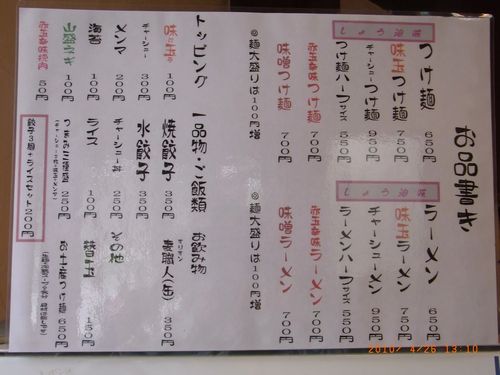 お品書き
しょう油味
つけ麺 650円
味玉つけ麺 750円
チャーシューつけ麺 950円
つけ麺ハーフサイズ 550円
赤玉辛味つけ麺 700円
味噌つけ麺 700円
◎麺大盛りは100円増
しょう油味
ラーメン 650円
味玉ラーメン 750円
チャーシューメン 950円
ラーメンハーフサイズ 550円
赤玉辛味ラーメン 700円
味噌ラーメン 700円
◎麺大盛りは100円増
トッピング
味玉 100円
チャーシュー 300円
メンマ 200円
海苔 100円
山盛ネギ 100円
赤玉辛味挽肉 50円
一品物・ご飯類
焼餃子 350円
水餃子 350円
チャーシュー丼 250円
ライス 100円
つまみ三種盛 250円
餃子3個+ライスセット200円
お飲み物
麦職人(缶) 350円
その他
替玉 150円
お土産つけ麺 650円
2010/ 4/26 13:10